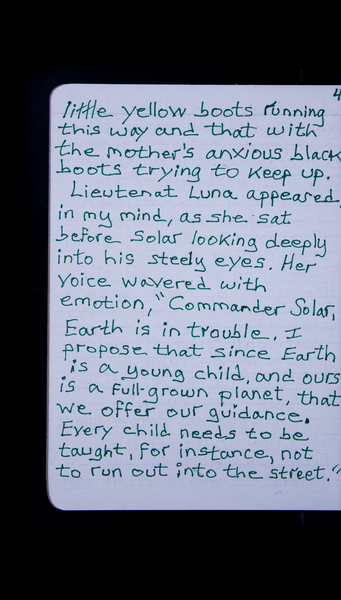 4
little yellow boots running
this way and that with
the mother's anxious black
boots trying to keep up.
Lieutenat Luna appeared,
in my mind, as she sat
before Solar looking deeply
into his steely eyes. Her
voice wavered with
emotion, "Commander Solar,
Earth is in trouble. I
propose that since Earth
is a young child, and ours
is a full-grown planet, that
we offer our guidance.
Every child needs to be
taught, for instance, not
to run out into the street."